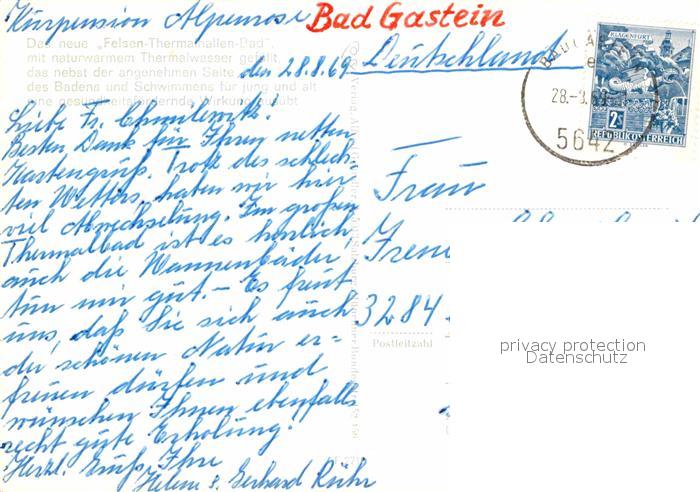 Kurpension Alpenrose Bad Gastein
Das neue „Felsen-Thermalhallen-Bad",
mit naturwarmem Thermalwasser gefüllt,
das nebst der angenehmen Seite
des Badens und Schwimmens für jung und alt
eine gesundheitsfördernde Wirkung ausübt
den 28.8.69 Deutschland
Liebe Fr.
Besten Dank für Ihren netten
Kartengruß. Trotz des schlech-
ten Wetters, haben wir hier
viel Abwechselung. Im großen
Thermalbad ist es herrlich,
auch die Wannenbäder,
tun mir gut. – Es freut
uns, daß Sie sich auch
der schönen Natur er-
freuen dürfen und
wünschen Ihnen ebenfalls
recht gute Erholung.
Herzl. Grüße Ihre
Helene u. Gerhard Rühr
KLAGENFURT
2S
REPUBLIK ÖSTERREICH
28.-9.
5642
Frau
Irene
3284
Postleitzahl
privacy protection
Datenschutz